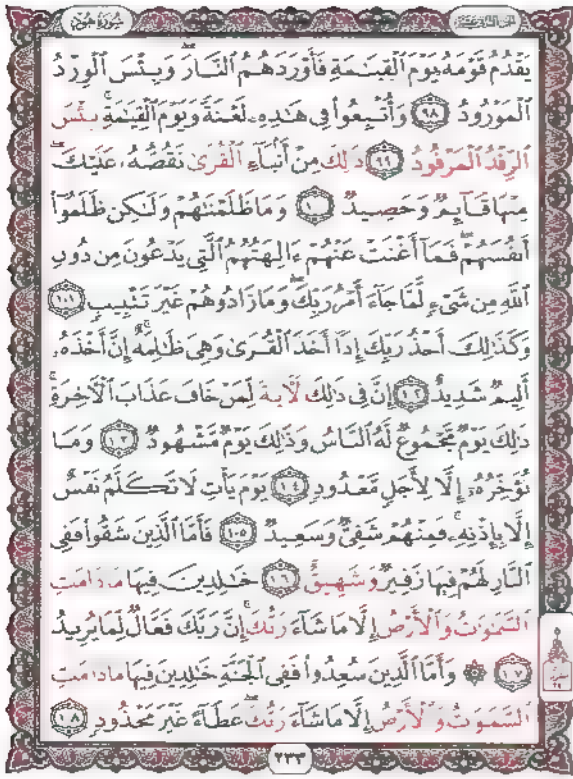 سورة هود
الجزء الثاني عشر
يَقْدُمُ قَوْمَهُۥ يَوْمَ ٱلْقِيَـٰمَةِ فَأَوْرَدَهُمُ ٱلنَّارَ ۖ وَبِئْسَ ٱلْوِرْدُ
ٱلْمَوْرُودُ ٩٨ وَأُتْبِعُوا۟ فِى هَـٰذِهِۦ لَعْنَةً وَيَوْمَ ٱلْقِيَـٰمَةِ ۚ بِئْسَ
ٱلرِّفْدُ ٱلْمَرْفُودُ ٩٩ ذَٰلِكَ مِنْ أَنۢبَآءِ ٱلْقُرَىٰ نَقُصُّهُۥ عَلَيْكَ ۖ
مِنْهَا قَآئِمٌ وَحَصِيدٌ ١٠٠ وَمَا ظَلَمْنَـٰهُمْ وَلَـٰكِن ظَلَمُوٓا۟
أَنفُسَهُمْ ۖ فَمَآ أَغْنَتْ عَنْهُمْ ءَالِهَتُهُمُ ٱلَّتِى يَدْعُونَ مِن دُونِ
ٱللَّهِ مِن شَىْءٍ لَّمَّا جَآءَ أَمْرُ رَبِّكَ ۖ وَمَا زَادُوهُمْ غَيْرَ تَتْبِيبٍ ١٠١
وَكَذَٰلِكَ أَخْذُ رَبِّكَ إِذَآ أَخَذَ ٱلْقُرَىٰ وَهِىَ ظَـٰلِمَةٌ ۚ إِنَّ أَخْذَهُۥٓ
أَلِيمٌ شَدِيدٌ ١٠٢ إِنَّ فِى ذَٰلِكَ لَـَٔايَةً لِّمَنْ خَافَ عَذَابَ ٱلْـَٔاخِرَةِ ۚ
ذَٰلِكَ يَوْمٌ مَّجْمُوعٌ لَّهُ ٱلنَّاسُ وَذَٰلِكَ يَوْمٌ مَّشْهُودٌ ١٠٣ وَمَا
نُؤَخِّرُهُۥٓ إِلَّا لِأَجَلٍ مَّعْدُودٍ ١٠٤ يَوْمَ يَأْتِ لَا تَكَلَّمُ نَفْسٌ
إِلَّا بِإِذْنِهِۦ ۚ فَمِنْهُمْ شَقِىٌّ وَسَعِيدٌ ١٠٥ فَأَمَّا ٱلَّذِينَ شَقُوا۟ فَفِى
ٱلنَّارِ لَهُمْ فِيهَا زَفِيرٌ وَشَهِيقٌ ١٠٦ خَـٰلِدِينَ فِيهَا مَا دَامَتِ
ٱلسَّمَـٰوَٰتُ وَٱلْأَرْضُ إِلَّا مَا شَآءَ رَبُّكَ ۚ إِنَّ رَبَّكَ فَعَّالٌ لِّمَا يُرِيدُ
١٠٧ ۞ وَأَمَّا ٱلَّذِينَ سُعِدُوا۟ فَفِى ٱلْجَنَّةِ خَـٰلِدِينَ فِيهَا مَا دَامَتِ
ٱلسَّمَـٰوَٰتُ وَٱلْأَرْضُ إِلَّا مَا شَآءَ رَبُّكَ ۖ عَطَآءً غَيْرَ مَجْذُوذٍ ١٠٨
٢٣٣